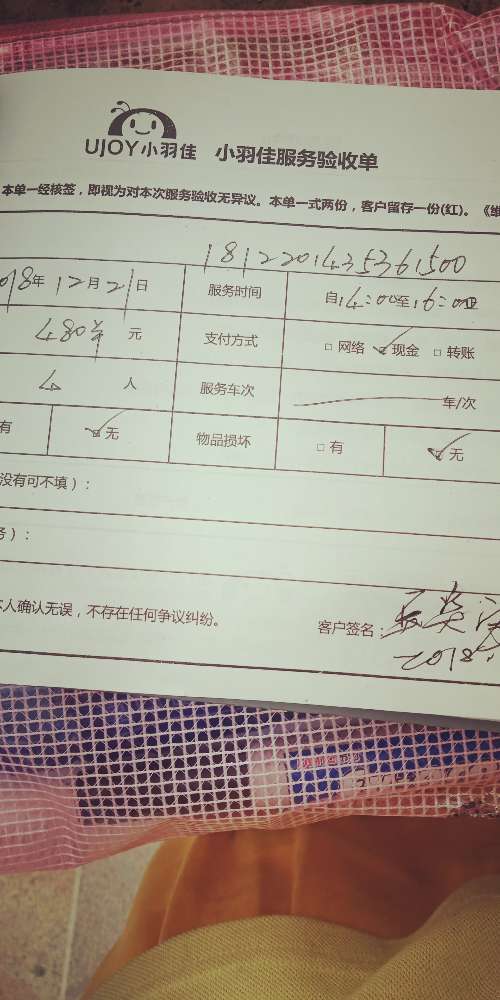 UJOY小羽佳 小羽佳服务验收单
本单一经核签，即视为对本次服务验收无异议。本单一式两份，客户留存一份(红)。《维
1812201435361500
018年12月21日 服务时间 自14:00至16:00
480 元 支付方式 □ 网络 ☑ 现金 □ 转账
4 人 服务车次 年/次
有 ☑ 无 物品损坏 □ 有 ☑ 无
没有可不填）：
务）：
本人确认无误，不存在任何争议纠纷。 客户签名：
2018.